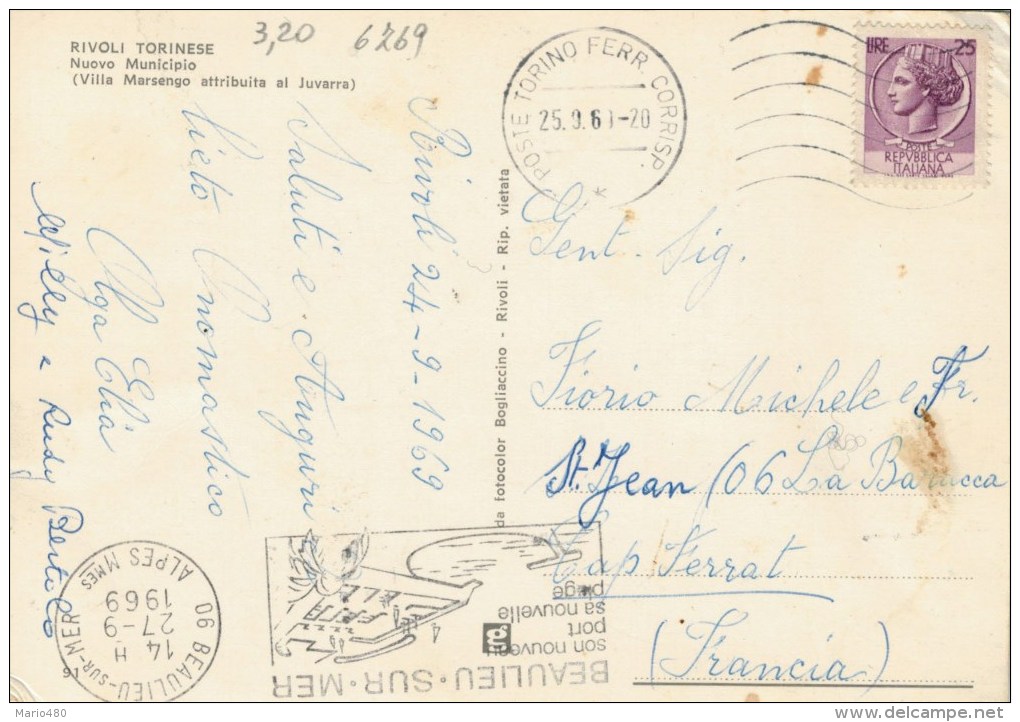 3,20 6269
RIVOLI TORINESE
Nuovo Municipio
(Villa Marsengo attribuita al Juvarra)
Rivoli 24-9-1969
Saluti e Auguri
lieto Onomastico
Olga Elia
Willy e Rudy
da fotocolor Bogliaccino - Rivoli - Rip. vietata
POSTE TORINO FERR. CORRISP.
25.9.69-20
LIRE 25
POSTE
REPVBBLICA
ITALIANA
Gent. Sig.
Fiorio Michele e Fr.
St. Jean (06 La Baracca
Cap Ferrat
(Francia)
BEAULIEU·SUR·MER
son nouveau
port
sa nouvelle
plage
06 BEAULIEU-SUR-MER
14 H
27-9
1969
ALPES MMES
91
Mario480
www.delcampe.net